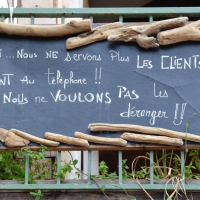 ... Nous ne servons Plus LES CLIENTS
NT Au téléphone !!
Nous ne VOULONS PAS les
déranger !!